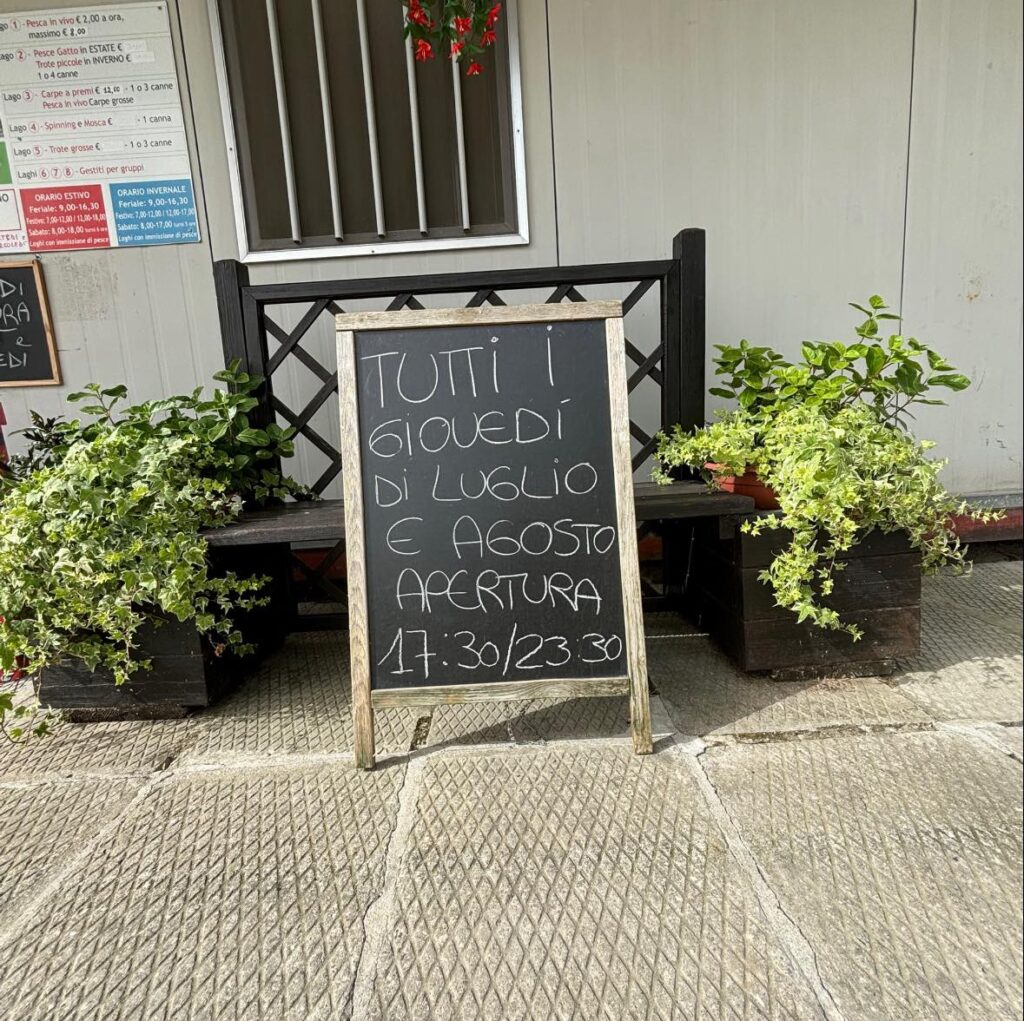 Lago 1 - Pesca in vivo € 2,00 a ora,
massimo € 8,00
Lago 2 - Pesce Gatto in ESTATE €
Trote piccole in INVERNO €
1 o 4 canne
Lago 3 - Carpe a premi € 12,00 - 1 o 3 canne
Pesca in vivo Carpe grosse
Lago 4 - Spinning e Mosca € - 1 canna
Lago 5 - Trote grosse € - 1 o 3 canne
Laghi 6 7 8 - Gestiti per gruppi
ORARIO ESTIVO
Feriale: 9,00-16,30
Festivo: 7,00-12,00 / 12,00-18,00
Sabato: 8,00-18,00 turni 5 ore
Laghi con immissione di pesce
ORARIO INVERNALE
Feriale: 9,00-16,30
Festivo: 7,00-12,00 / 12,00-17,00
Sabato: 8,00-17,00 turni 5 ore
Laghi con immissione di pesce
TUTTI i
GIOVEDÍ
Di LUGLIO
E AGOSTO
APERTURA
17:30/23:30